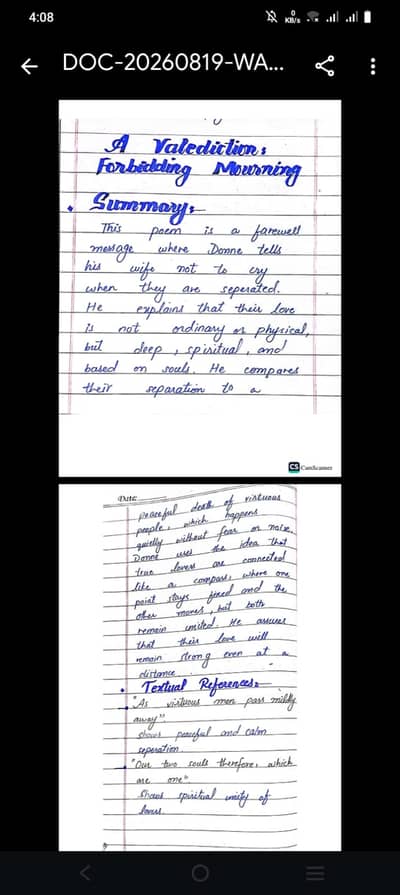 4:08
0
KB/s
DOC-20260819-WA...
A Valediction:
Forbidding Mourning
Summary:-
This poem is a farewell
message where Donne tells
his wife not to cry
when they are seperated.
He explains that their love
is not ordinary or physical,
but deep, spiritual, and
based on souls. He compares
their separation to a
CS CamScanner
Date:
peaceful death of virtuous
people, which happens
quietly without fear or noise.
Donne uses the idea that
true lovers are connected
like a compass, where one
point stays fixed and the
other moves, but both
remain united. He assures
that their love will
remain strong even at a
distance.
Textual References:-
"As virtuous men pass mildly
away".
Shows peaceful and calm
seperation.
"Our two souls therefore, which
are one".
Shows spiritual unity of
lovers.